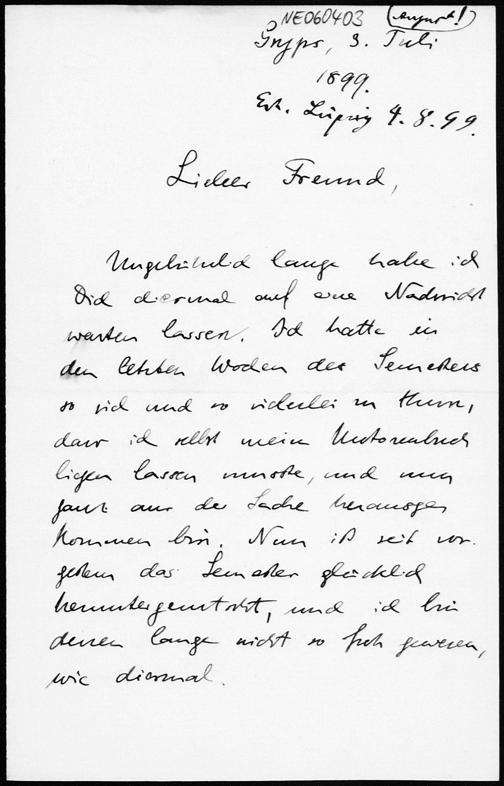 NE060403 (August!)
Gryps, 3. Juli
1899.
Erh. Leipzig 4.8.99.
Lieber Freund,
Ungebührlich lange habe ich
Dich diesmal auf eine Nachricht
warten lassen. Ich hatte in
den letzten Wochen des Semesters
so viel und so vielerlei zu thun,
dass ich selbst mein Motorenbuch
liegen lassen musste, und nun
ganz aus der Sache herausge-
kommen bin. Nun ist seit vor-
gestern das Semester glücklich
heruntergemurkst, und ich bin
dessen lange nicht so froh gewesen,
wie diesmal.